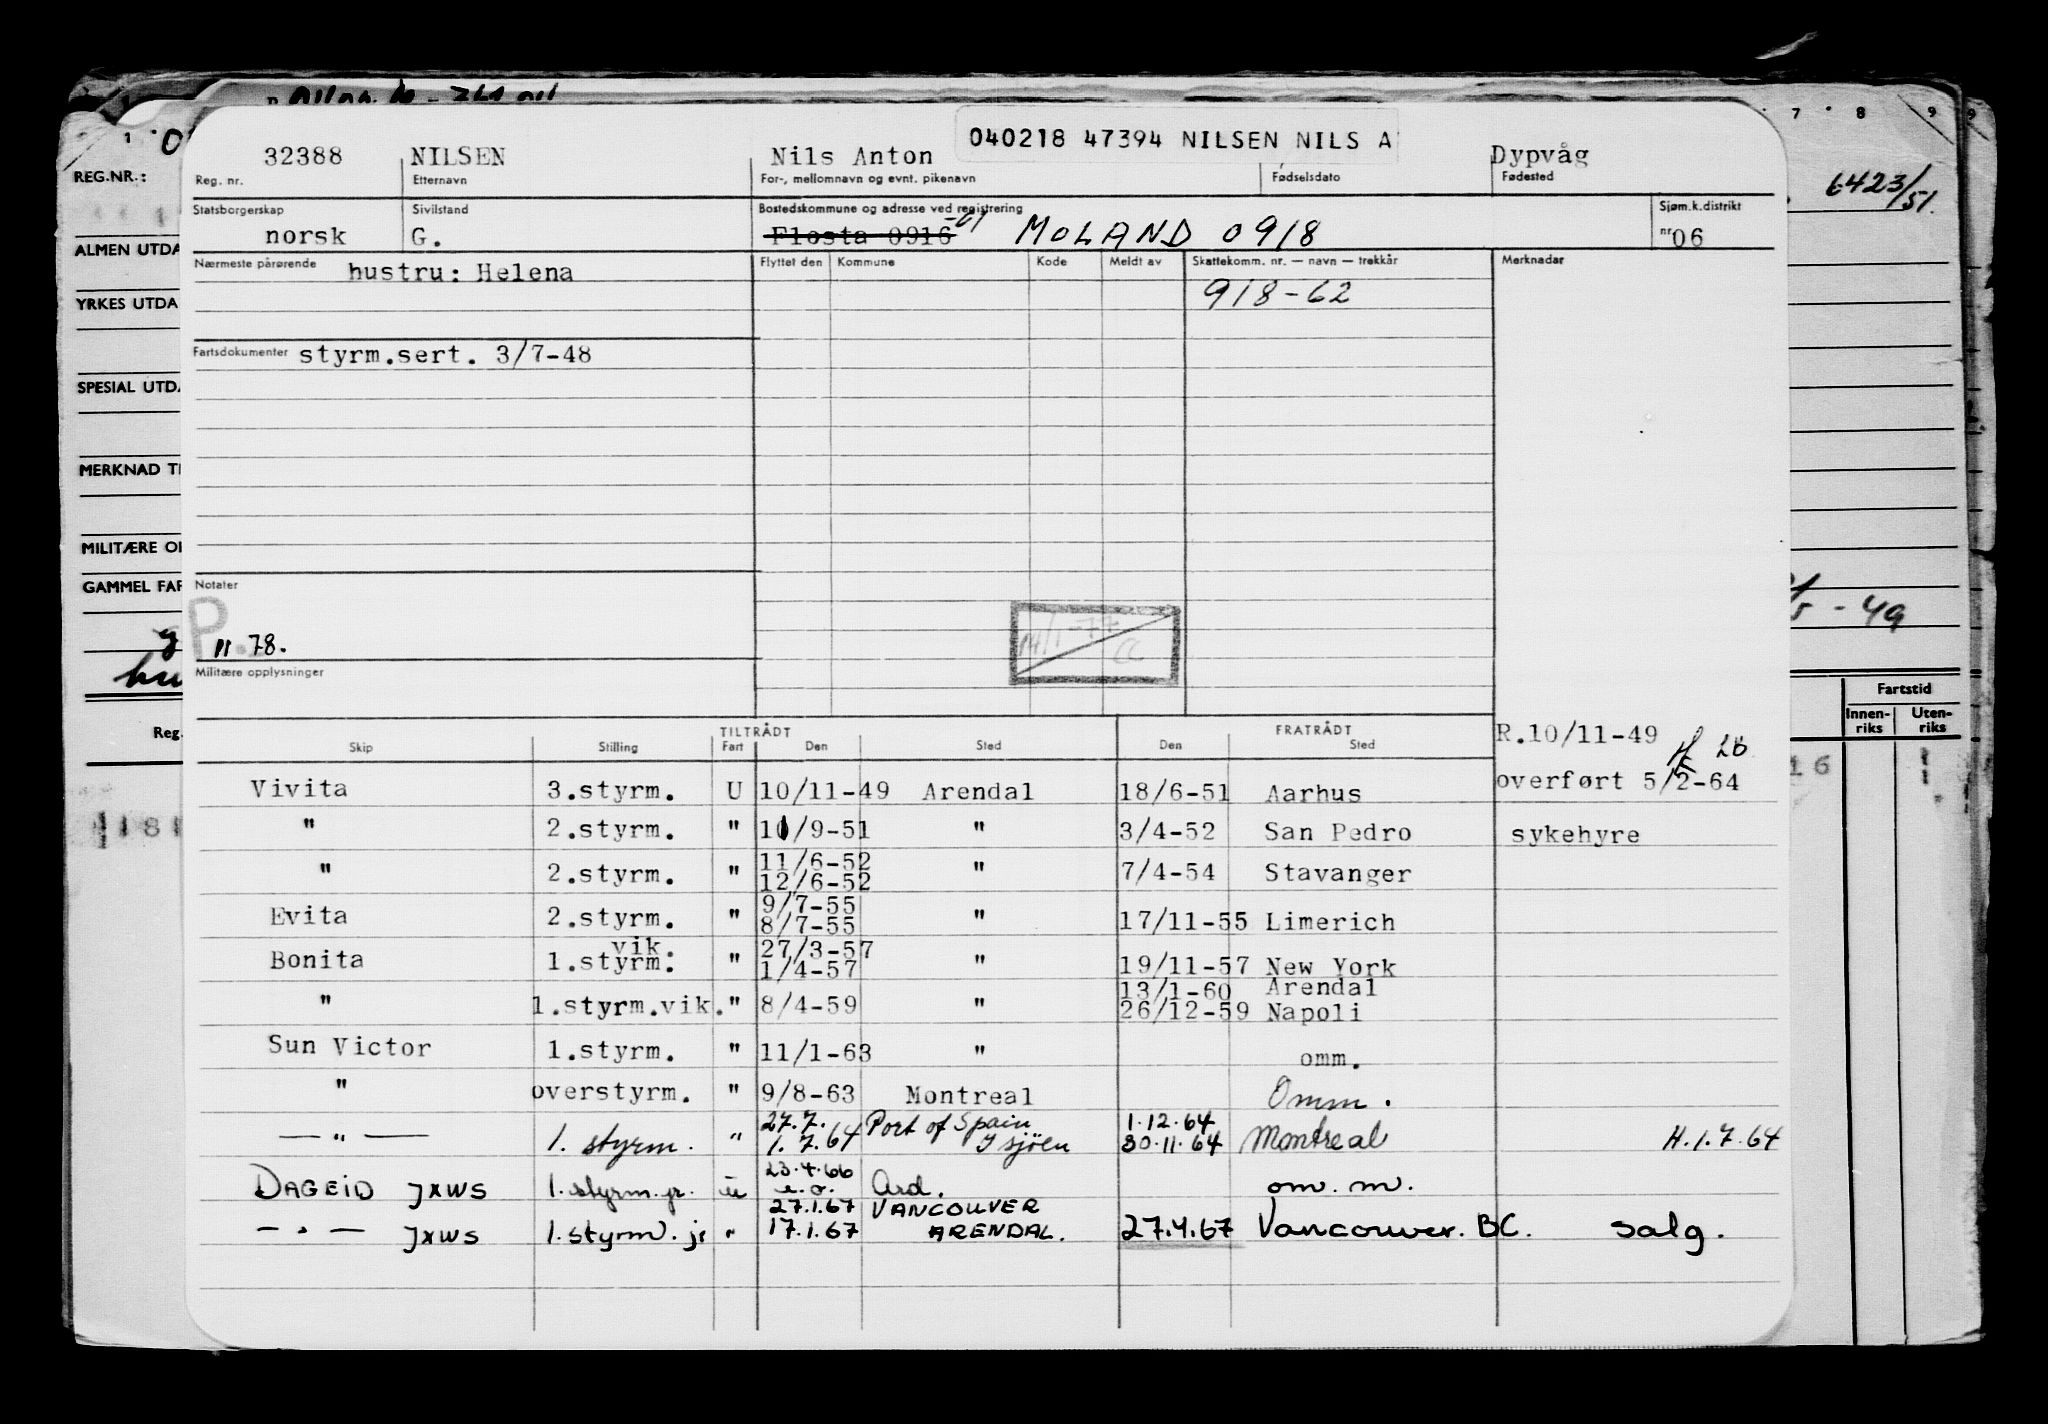 040218 47394 NILSEN NILS A
32388 NILSEN Nils Anton Dypvåg
Reg. nr. Etternavn For-, mellomnavn og evnt. pikenavn Fødselsdato Fødested
REG.NR.:
6423/51.
Statsborgerskap Sivilstand Bostedskommune og adresse ved registrering Sjøm.k.distrikt
norsk G. Flosta 0916 -61 MOLAND 0918 nr 06
ALMEN UTDA
Nærmeste pårørende hustru: Helena Flyttet den Kommune Kode Meldt av Skattekomm. nr. — navn — trekkår Merknader
918-62
YRKES UTDA
Fartsdokumenter styrm.sert. 3/7-48
SPESIAL UTDA
MERKNAD TI
MILITÆRE O
GAMMEL FAR
Notater
P. 11 78.
14/1-77
CC
- 49
Militære opplysninger
Fartstid
Innen-riks Uten-riks
Reg.
TILTRÅDT FRATRÅDT R.10/11-49
Skip Stilling Fart Den Sted Den Sted
overført 5/2-64
Vivita 3.styrm. U 10/11-49 Arendal 18/6-51 Aarhus
" 2.styrm. " 10/9-51 " 3/4-52 San Pedro sykehyre
11/6-52
" 2.styrm. " 12/6-52 " 7/4-54 Stavanger
9/7-55
Evita 2.styrm. " 8/7-55 " 17/11-55 Limerich
vik. 27/3-57
Bonita 1.styrm. " 1/4-57 " 19/11-57 New York
13/1-60 Arendal
" 1.styrm.vik. " 8/4-59 " 26/12-59 Napoli
Sun Victor 1.styrm. " 11/1-63 " omm.
" overstyrm. " 9/8-63 Montreal Omm.
27.7. Port of Spain 1.12.64
— " — 1. styrm. " 1.7.64 Isjöen 30.11.64 Montreal H.1.7.64
23.4.66
DAGEID JXWS 1.styrm.jr. u e.o. Ard. om. m.
27.1.67 VANCOUVER
— " — JXWS 1.styrm. jr " 17.1.67 ARENDAL. 27.4.67 Vancouver. BC. Salg.